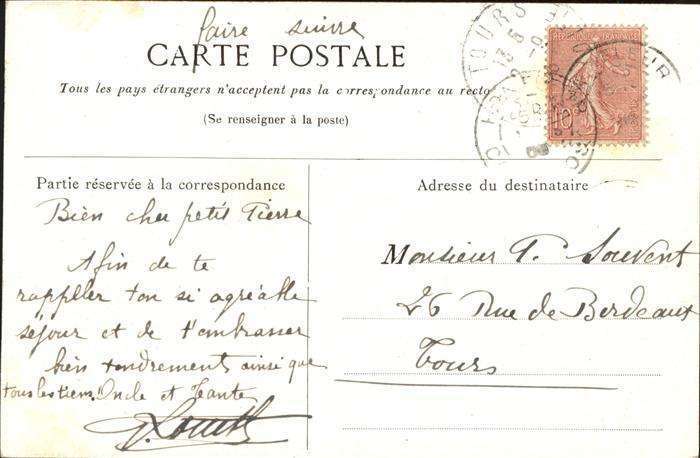 faire suivre
CARTE POSTALE
Tous les pays étrangers n'acceptent pas la correspondance au recto
(Se renseigner à la poste)
TOURS
RÉPUBLIQUE FRANÇAISE
10
Partie réservée à la correspondance
Bien cher petit Pierre
Afin de te
rappeller ton si agréable
séjour et de t'embrasser
bien tendrement ainsi que
tous les tiens. Oncle et Tante
Adresse du destinataire
Monsieur P. Souvent
26 Rue de Bordeaux
Tours